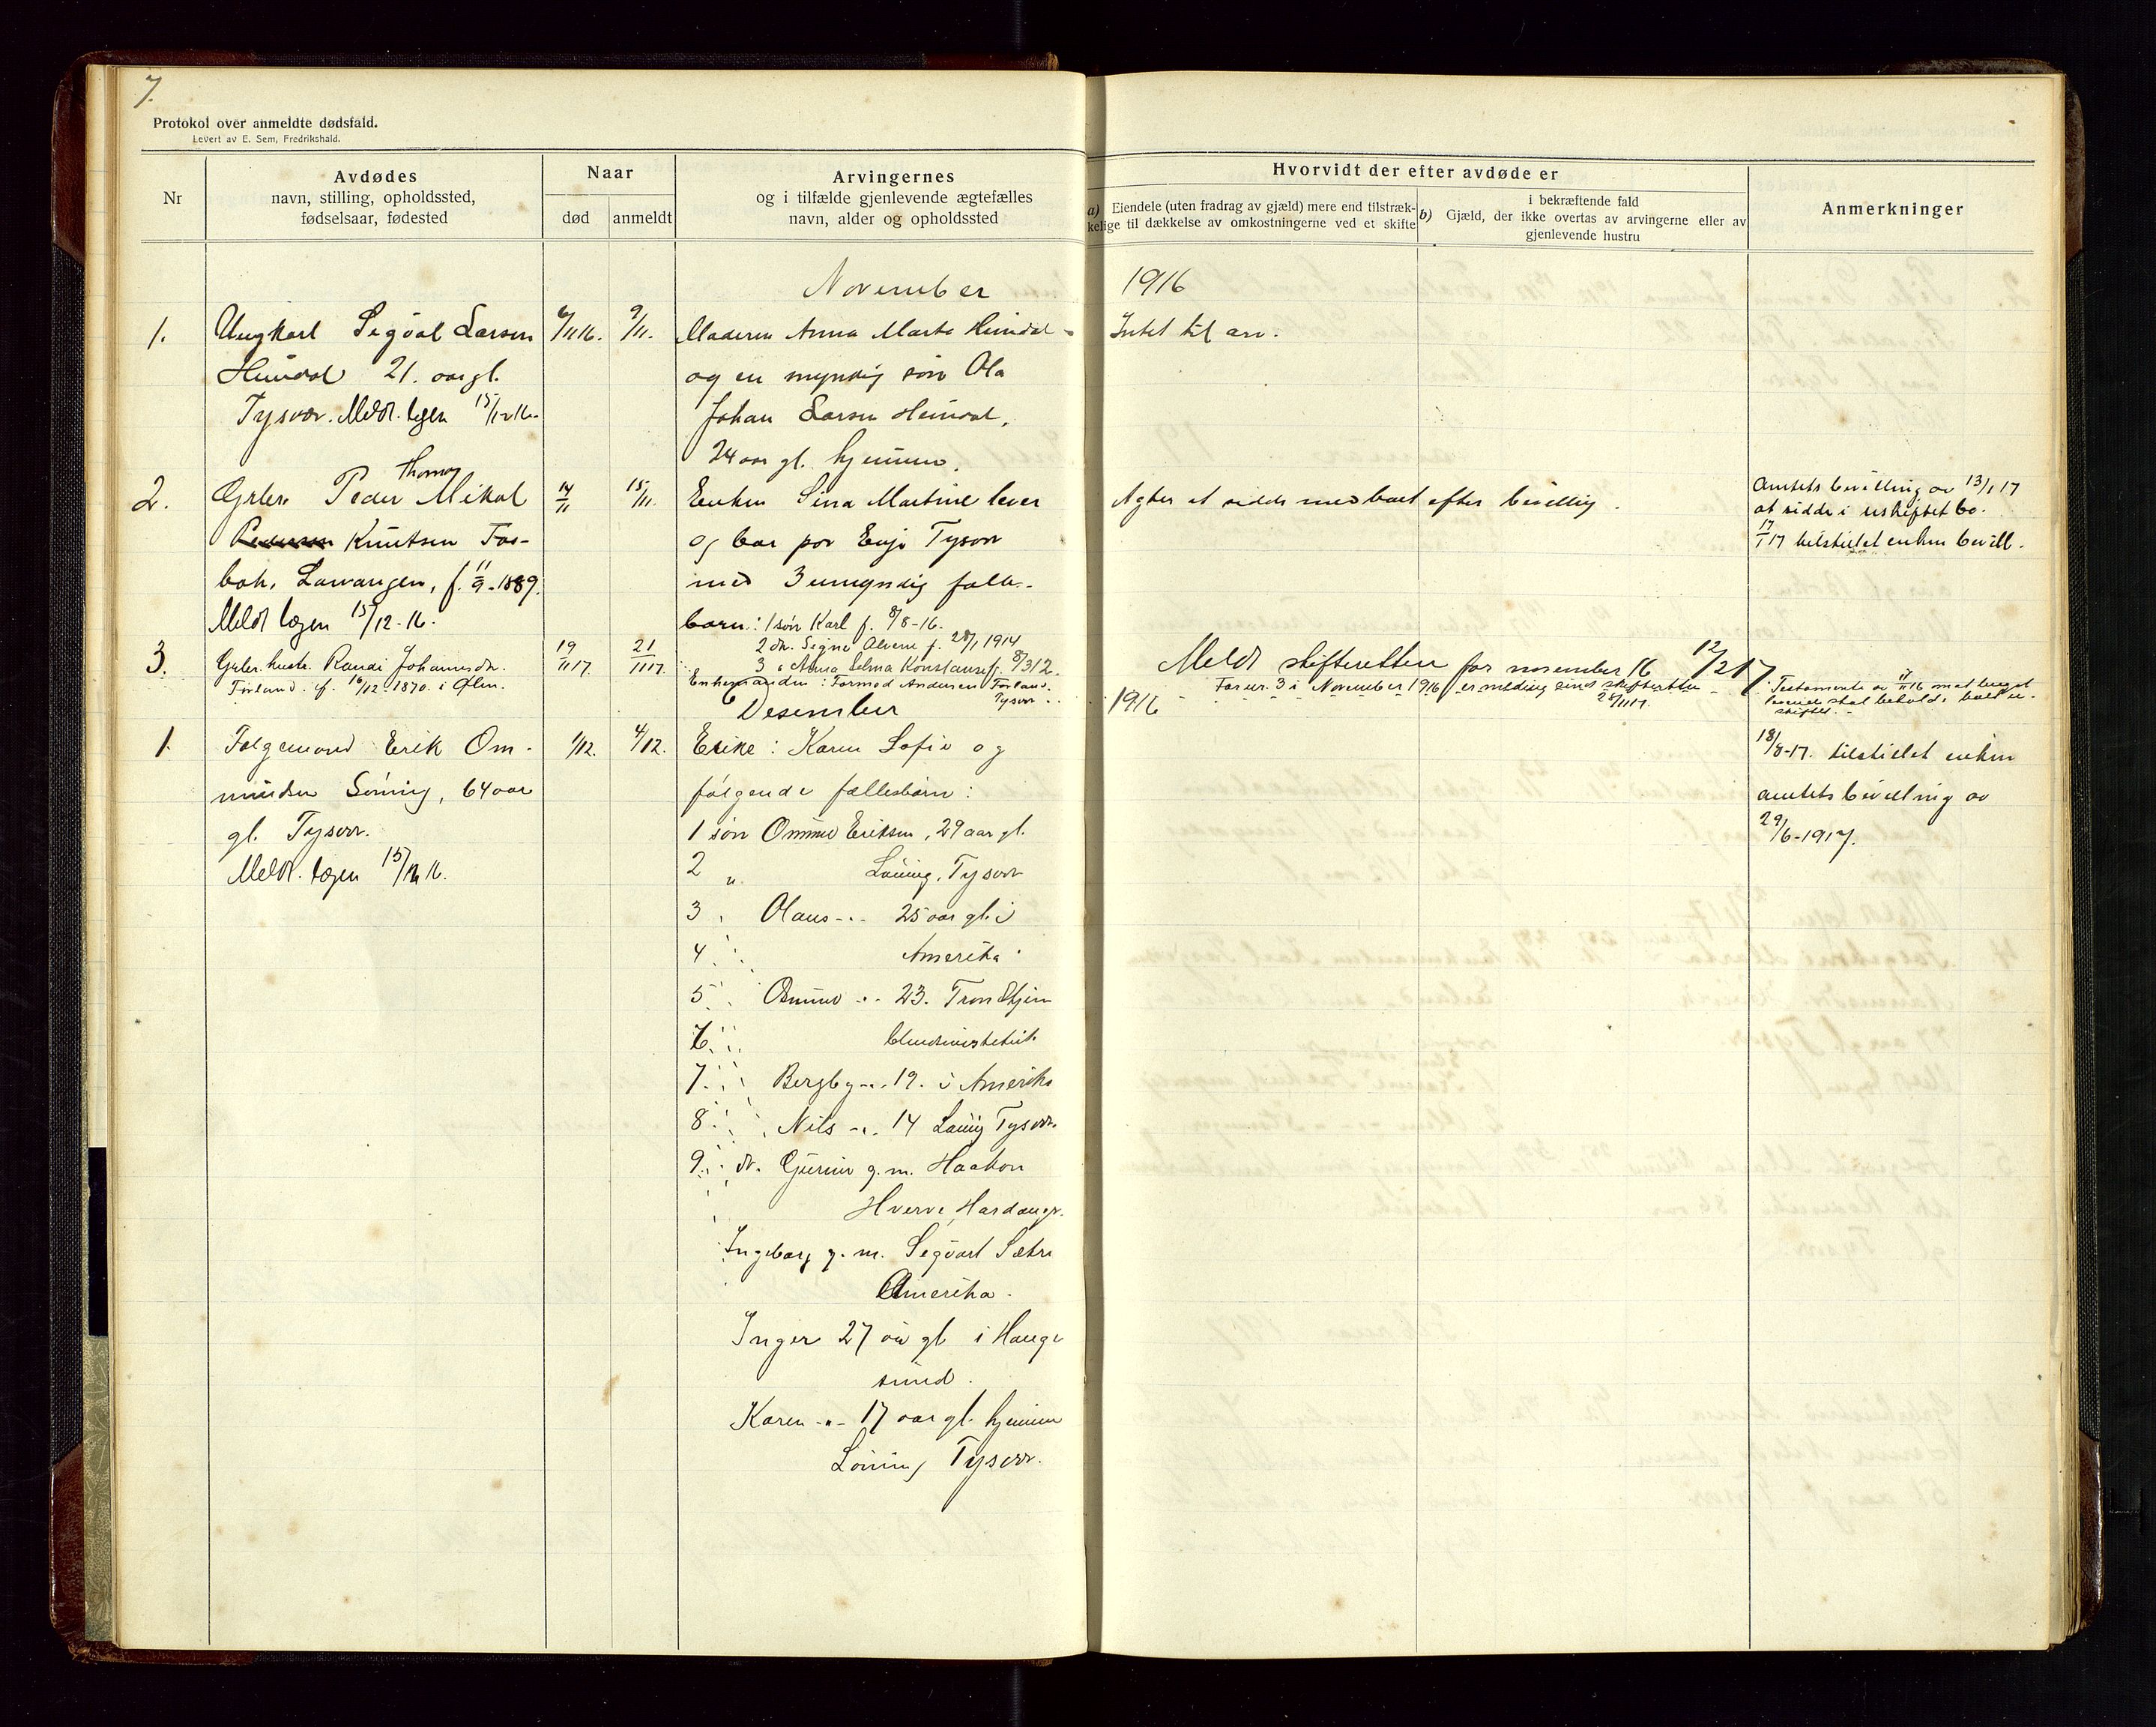 7.
Protokol over anmeldte dødsfald.
Levert av E. Sem, Fredrikshald.
Nr
Avdødes
navn, stilling, opholdssted,
fødselsaar, fødested
Naar
død
anmeldt
Arvingernes
og i tilfælde gjenlevende ægtefælles
navn, alder og opholdssted
Hvorvidt der efter avdøde er
a) Eiendele (uten fradrag av gjæld) mere end tilstræk-
kelige til dækkelse av omkostningerne ved et skifte
b) i bekræftende fald
Gjæld, der ikke overtas av arvingerne eller av
gjenlevende hustru
Anmerkninger
November 1916
1. Ungkarl Sigval Larsen 6/11 16. 9/11. Moderen Anna Marta Heimdal Intet til arv.
Heimdal 21. aar gl. og en myndig søn Ola
Tysvær. Meldt. lsgen 15/12 16. Johan Larsen Heimdal,
24 aar gl. hjemme.
2. Grbr. Peder Thomas Mikal 14/11 15/11. Enken Sina Martine lever Agter at sidde med boet efter bevilling. Amtets bevilling av 13/1 17
Pedersen Knutsen Fos- og bor paa Tysvær at sidde i uskiftet bo.
bak, Lavangen, f. 11/9-1889. med 3 umyndig fælles- 17/1 17 tilstillet enken bevill.
Meldt lsgen 15/12-16. børn: 1 søn Karl f. 8/8-16.
2 dtr. Signe f. 28/1 1914
3 " Anna Selma Konstanse f. 8/3 12.
3. Grbr. hustr. Randi Johannesdtr. 19/11 17 21/11 17. Enkemanden: Tormod Andersen Førland
Førland. f. 16/12-1870. i Ølen. Tysvær
Meldt skifteretten for november 16 12/2 17
For nr. 3 i November 1916 er melding sendt skifteretten 28/11 17.
Testamente av 11/11 16
Desember 1916
1. Følgemand Erik Om- 1/12. 4/12. Enke: Karen Sofie og 18/8-17. tilstillet enken
mundsen Løning, 64 aar følgende fællesbørn: amtets bevilling av
gl. Tysvær. 1 søn Ommund Eriksen, 29 aar gl. 29/6-1917.
Meldt. lsgen 15/12 16. 2 " Løning, Tysvær
3 " Olaus -"- 25 aar gl. i
4 Amerika
5 -"- 23. Trondhjem
6.
7. Bergby -"- 19. i Amerika
8. Nils -"- 14 Løning Tysvær.
9. dt. Gurine g. m. Haakon
Hverve, Hardanger.
Ingeborg g. m. Sigvart Sætre
Amerika.
Inger 27 aar gl i Hauge
sund.
Karen -"- 17 aar gl. hjemme
Løning Tysvær.